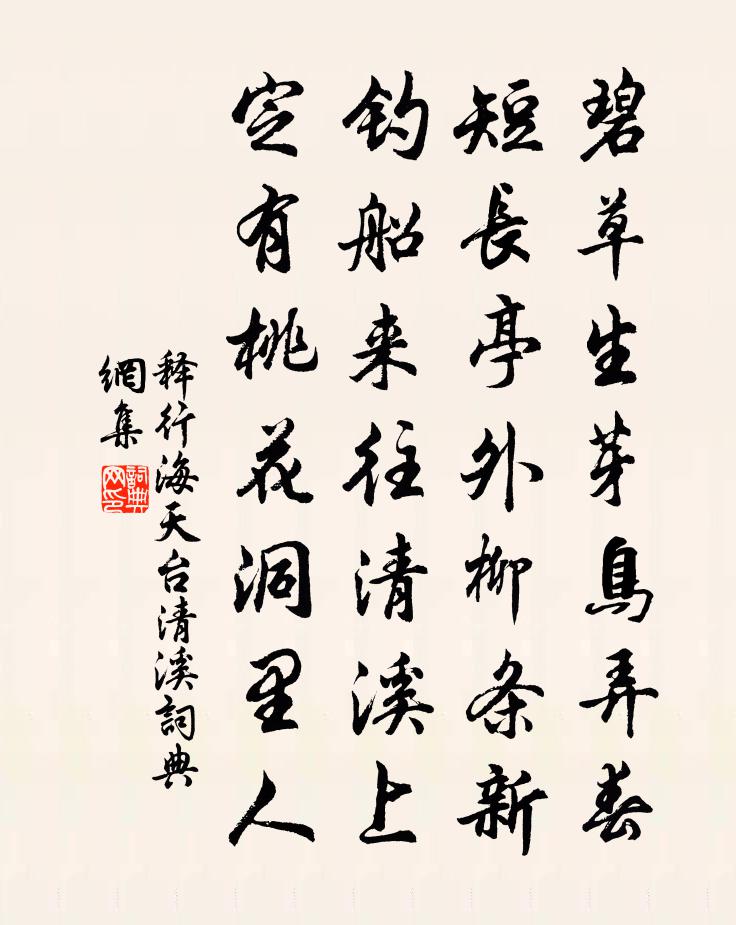 碧草生芽鳥弄春
短長亭外柳条新
钓船来往清溪上
定有桃花洞里人
释行海天台清溪詞典
網集
詞典
网印